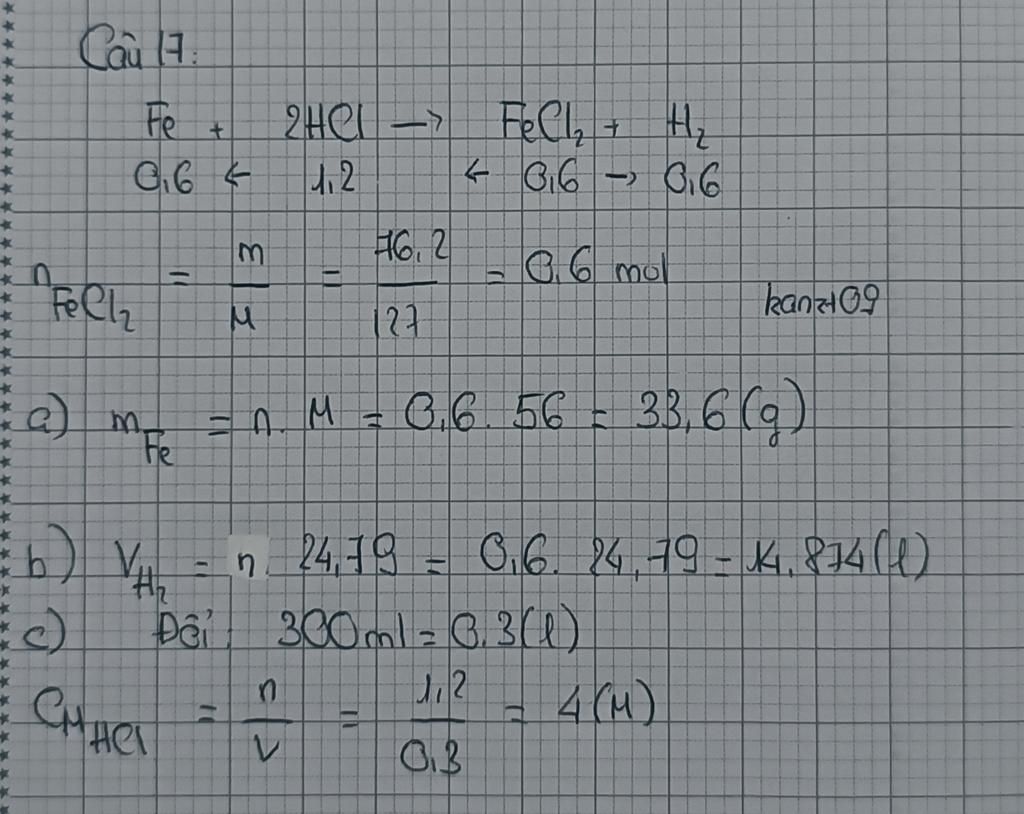 Câu 17:
Fe + 2HCl → FeCl₂ + H₂
0,6 ← 1,2 ← 0,6 → 0,6
n FeCl₂ = m/M = 76,2/127 = 0,6 mol
kanzt09
a) m Fe = n. M = 0,6. 56 = 33,6 (g)
b) V H₂ = n. 24,79 = 0,6. 24,79 = 14,874 (l)
c) Đổi: 300ml = 0,3(l)
CM HCl = n/V = 1,2/0,3 = 4 (M)